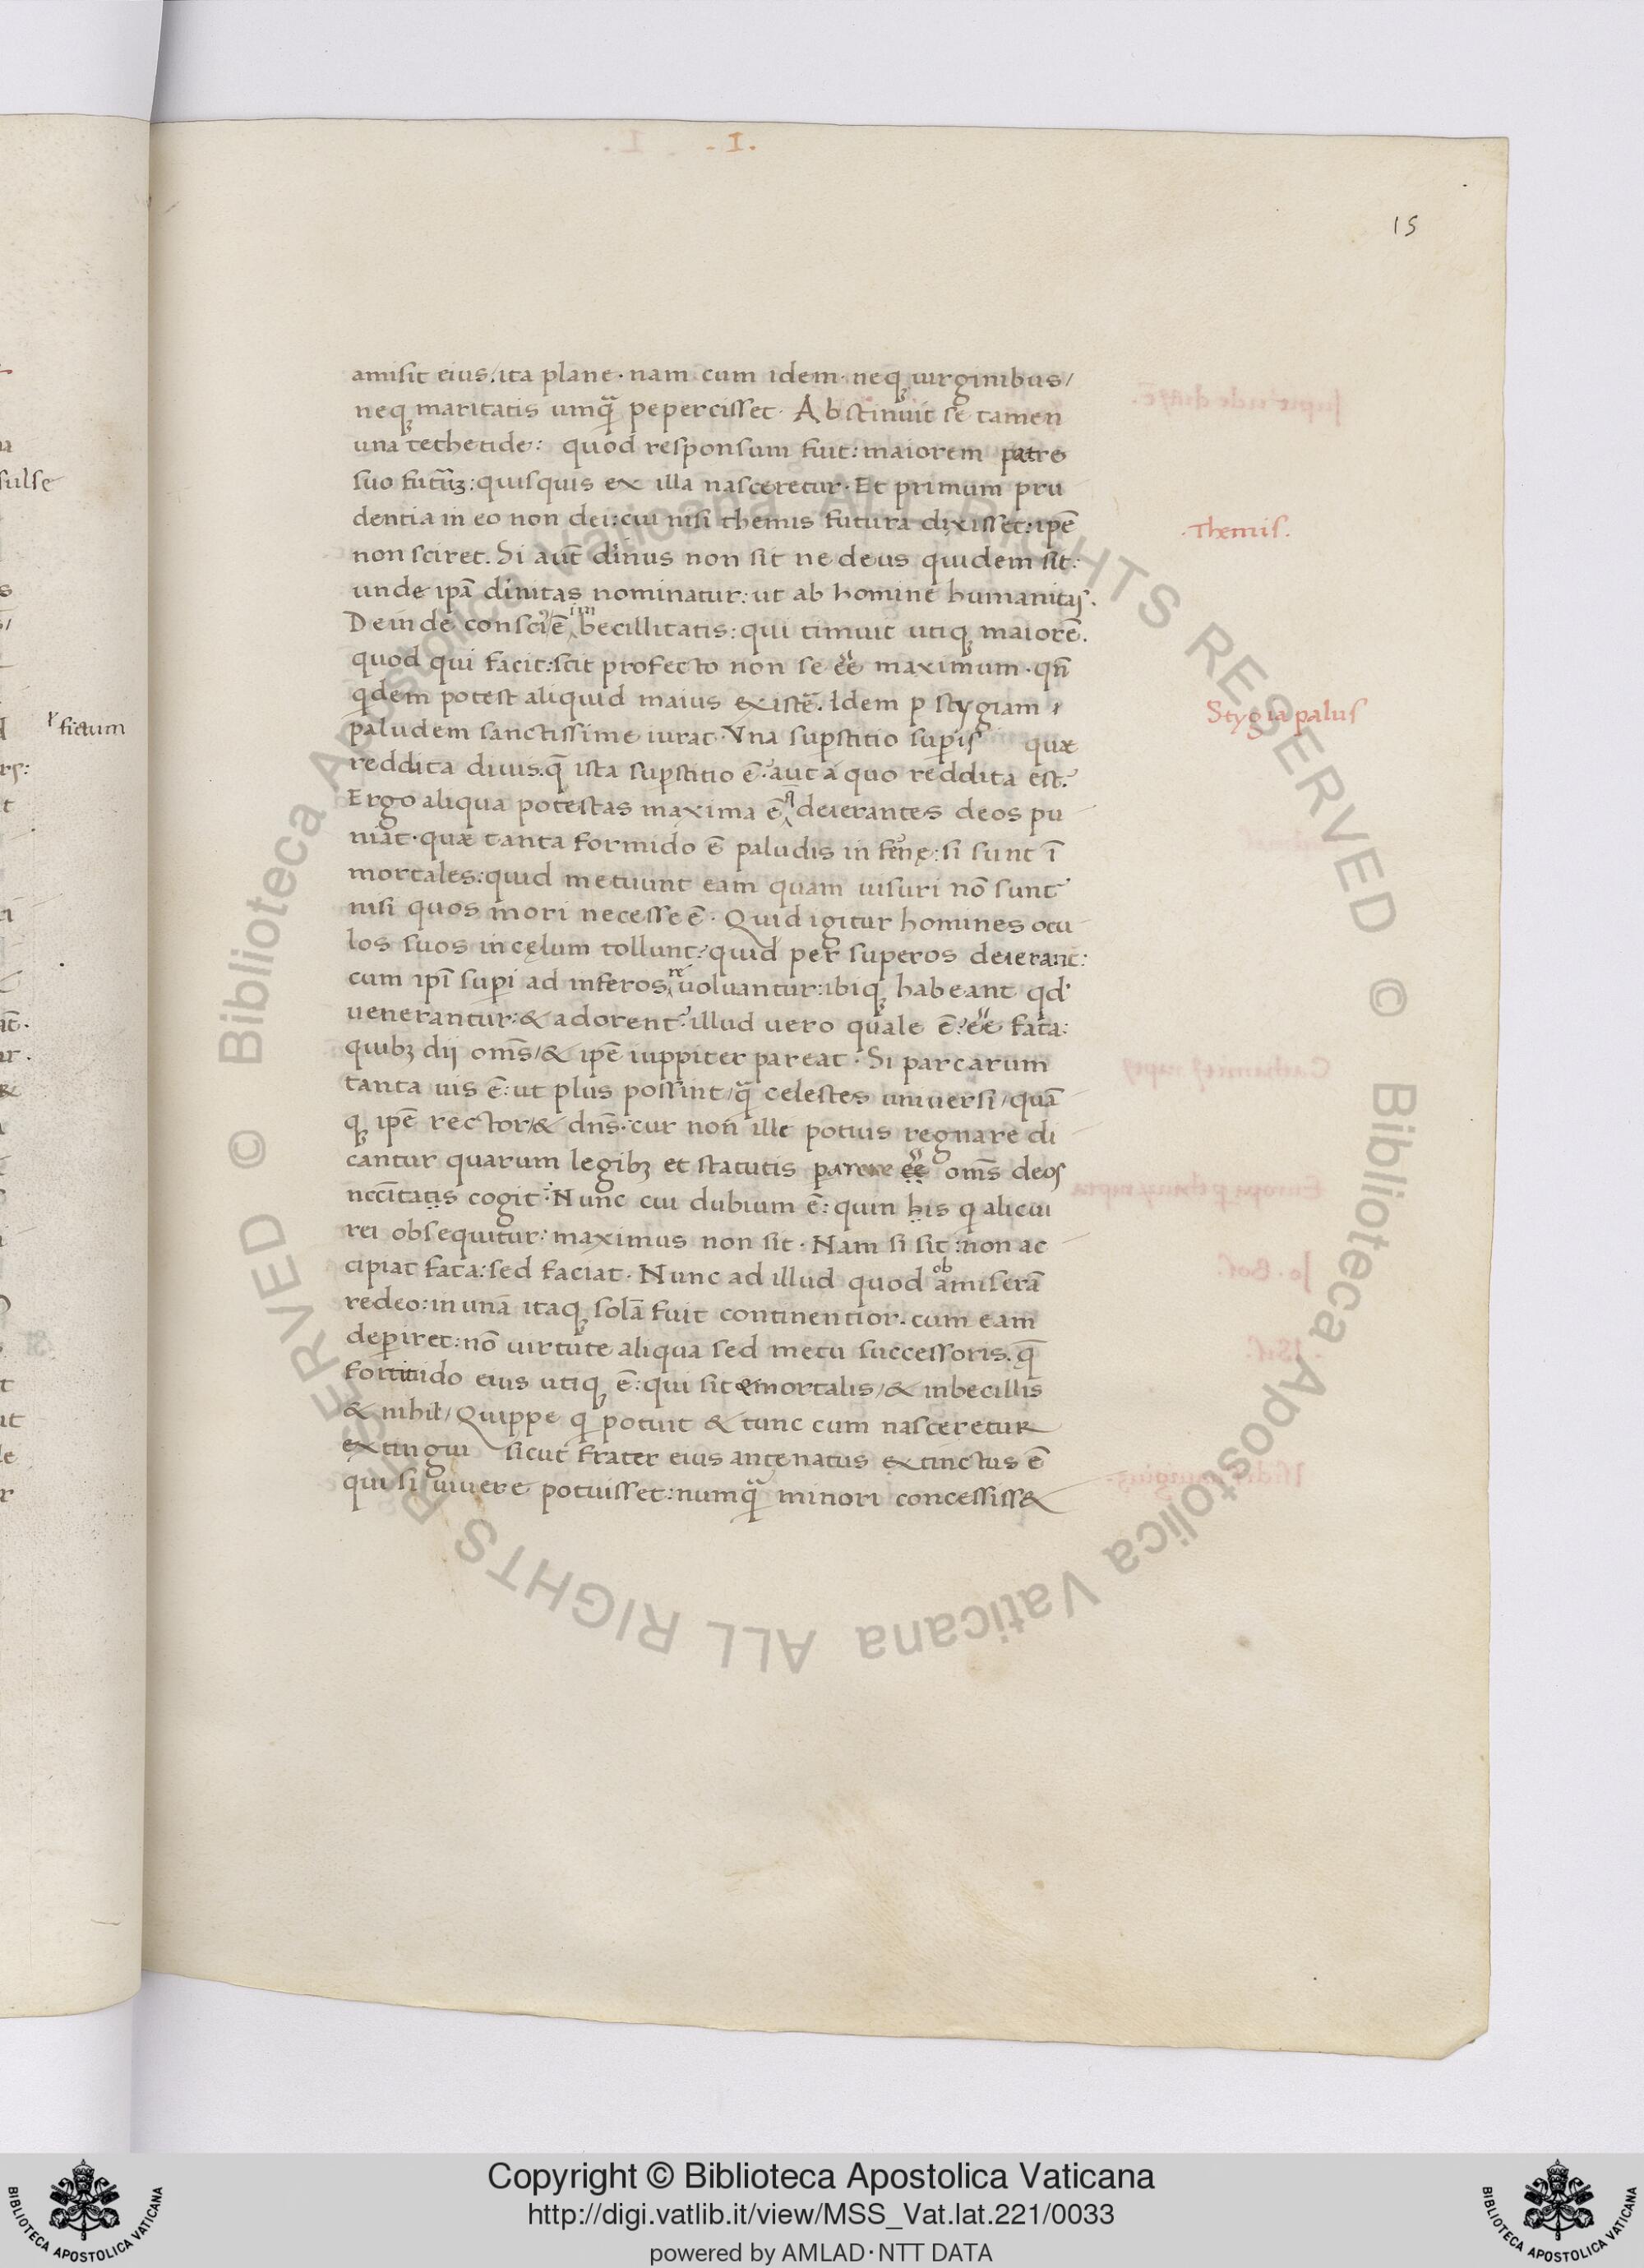 .I.
15
amisit eius. ita plane. nam cum idem neqꝫ uirginibus/
neqꝫ maritatis umqᷓ pepercisset. Abstinuit se tamen
una tethetide: quod responsum fuit: maiorem patre
suo futuꝝ: quisquis ex illa nasceretur. Et primum pru
dentia in eo non dei: cui nisi themis futura dixisset: ipē
non sciret. Si aut̄ diuinus non sit ne deus quidem sit:
unde ipā diuinitas nominatur: ut ab homine humanitas.
Deinde imbecillitatis: qui timuit utiqꝫ maiorē.
quod qui facit: scit profecto non se eē maximum. qn̄
qdem potest aliquid maius existē. Idem ꝑ stygiam
paludem sanctissime iurat. Vna suꝑstitio suꝑis quæ
reddita diuis. q̄ ista suꝑstitio ē? aut a quo reddita est?
Ergo aliqua potestas maxima ē q deierantes deos pu
niat. quæ tanta formido ē paludis in: si sunt ī
mortales: quid metuunt eam quam uisuri nō sunt
nisi quos mori necesse ē. Quid igitur homines ocu
los suos in cęlum tollunt? quid per superos deierant:
cum ipī suꝑi ad inferos reuoluantur: ibiqꝫ habeant qd
uenerantur: & adorent? illud uero quale ē? eē fata:
quibꝫ dij oms̄/& ipē iuppiter pareat. Si parcarum
tanta uis ē: ut plus possint/ qᷓ celestes uniuersi/ quā
qꝫ ipē rector/& dns̄. cur non ille potius regnare di
cantur quarum legibꝫ et statutis parere eē oms̄ deos
nccītatis cogit: Nunc cui dubium ē: quin his q alicui
rei obsequitur: maximus non sit. Nam si sit: non ac
cipiat fata: sed faciat. Nunc ad illud quod obamiserā
redeo: in unā itaqꝫ solā fuit continentior. cum eam
deꝑiret: nō uirtute aliqua sed metu successoris. q̄
fortitudo eius utiqꝫ ē: qui sit mortalis/& inbecillis
& nihil/ Quippe q potuit & tunc cum nasceretur
extingui sicut frater eius antenatus extinctus ē
qui si uiuere potuisset: numqᷓ minori concessiss&
.Themis.
Stygia palus
fictum
sulse
© Biblioteca Apostolica Vaticana ALL RIGHTS RESERVED © Biblioteca Apostolica Vaticana ALL RIGHTS RESERVED
BIBLIOTECA APOSTOLICA VATICANA
Copyright © Biblioteca Apostolica Vaticana
http://digi.vatlib.it/view/MSS_Vat.lat.221/0033
powered by AMLAD·NTT DATA
BIBLIOTECA APOSTOLICA VATICANA